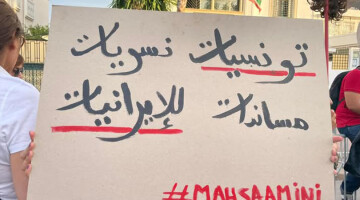 تونسيات نسويات
مساندات للإيرانيات
#MAHSAAMINI